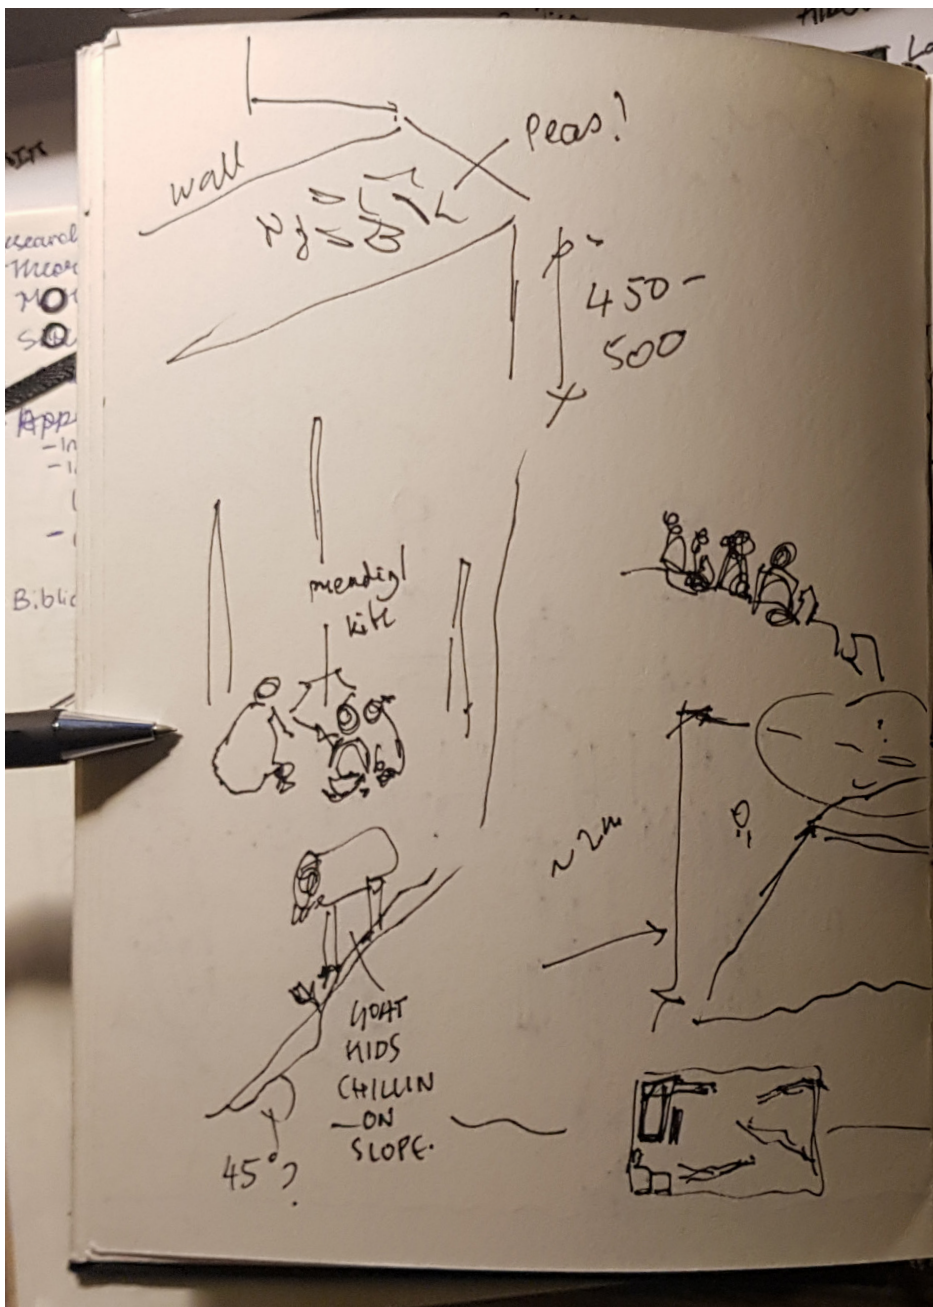 Peas!
wall
450-
500
mending
kite
~ 2m
GOAT
KIDS
CHILLIN
ON
SLOPE.
45°?
Biblio